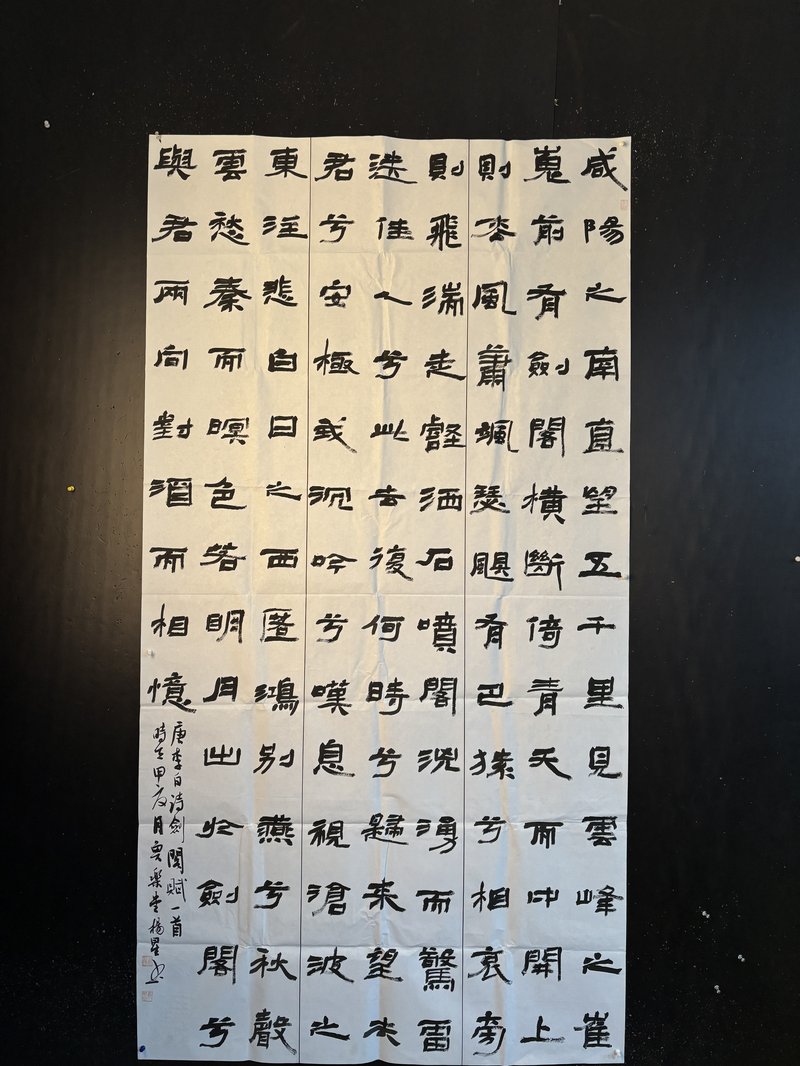 咸陽之南直望五千里見雲峰之崔
嵬前有劍閣橫斷倚青天而中開上
則枩風蕭颯瑟颶有巴猿兮相哀旁
則飛湍走壑洒石噴閣洶湧而驚雷
送佳人兮此去復何時兮歸來望夫
君兮安極我沉吟兮嘆息視滄波之
東注悲白日之西匿鴻別燕兮秋聲
雲愁秦而暝色若明月出於劍閣兮
與君兩向對酒而相憶
唐李白詩劍閣賦一首
時在甲辰月樂堂楊星書